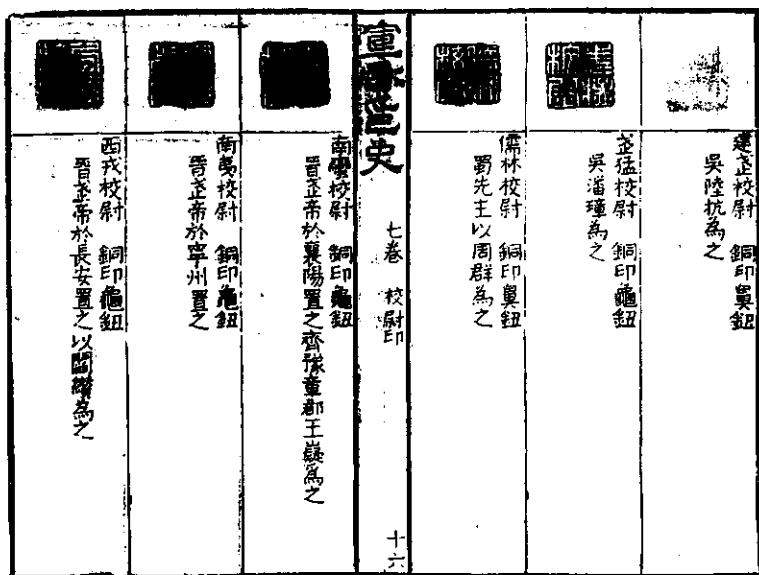 建武校尉 銅印鼻鈕
吳陸抗為之
武猛校尉 銅印龜鈕
吳潘璋為之
儒林校尉 銅印鼻鈕
蜀先主以周群為之
宣和印史
七卷 校尉印
十六
南蠻校尉 銅印龜鈕
晉武帝於襄陽置之齊豫章郡王嶷為之
南夷校尉 銅印龜鈕
晉武帝於寧州置之
西戎校尉 銅印龜鈕
晉武帝於長安置之以閻纘為之